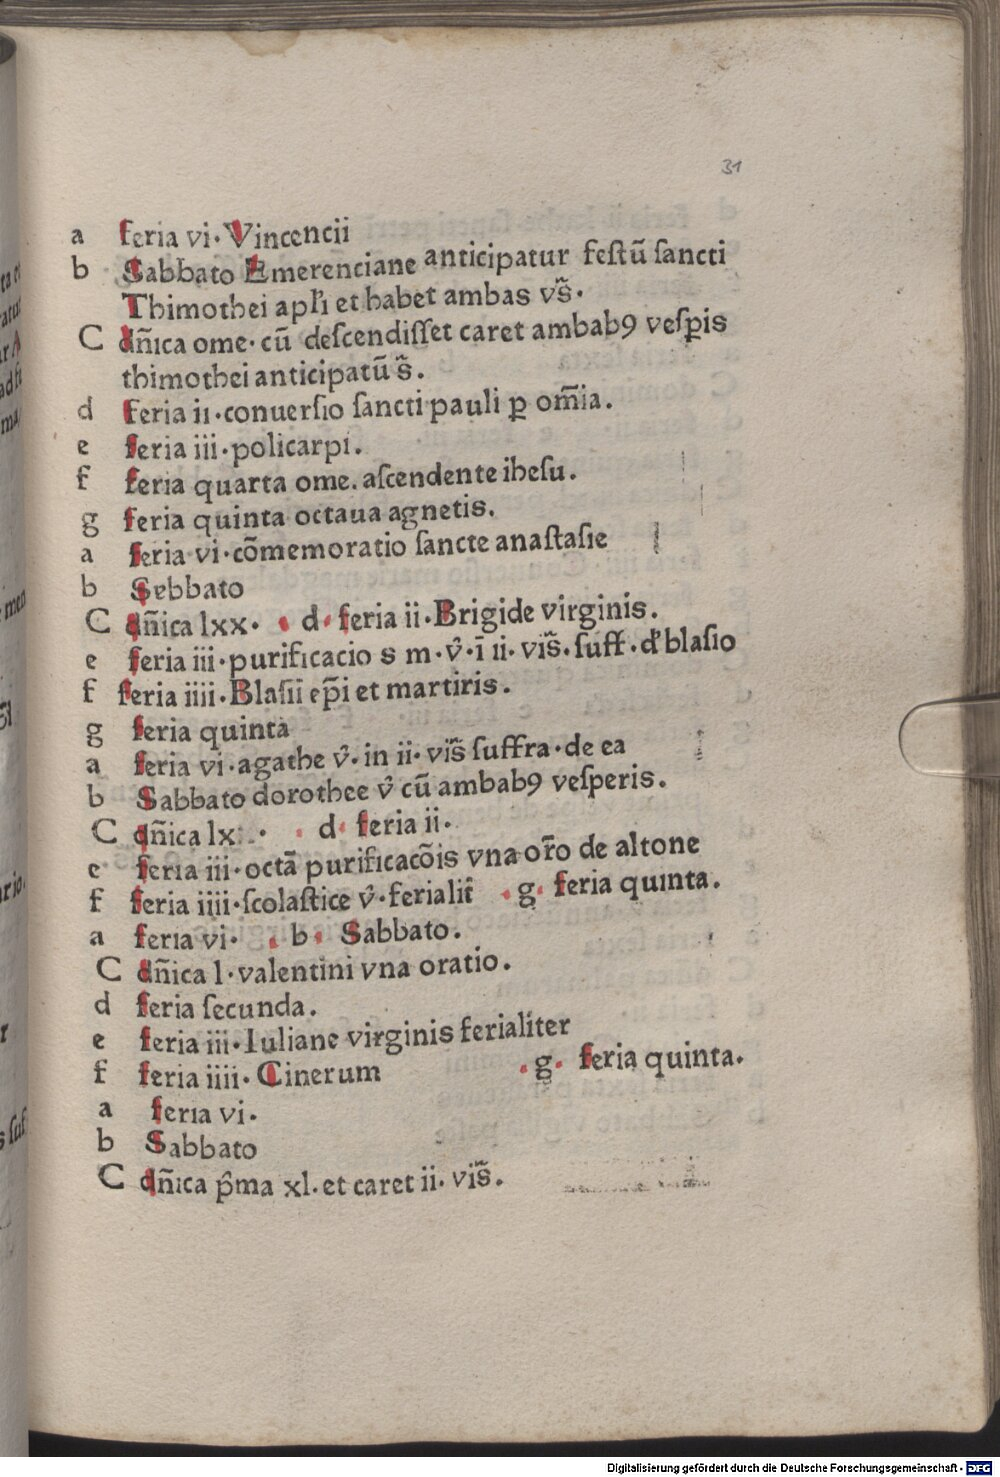 31
a feria vi · Vincencii
b Sabbato Emerenciane anticipatur festū sancti
Thimothei apl̃i et habet ambas vs̃ ·
C dñica ome · cū descendisset caret ambabꝯ vesꝑis
thimothei anticipatū s̃ .
d feria ii · conuersio sancti pauli ꝑ om̃ia .
e feria iii · policarpi .
f feria quarta ome . ascendente ihesu .
g feria quinta octaua agnetis .
a feria vi · cōmemoratio sancte anastasie
b Sebbato
C dñica lxx · d · feria ii · Brigide virginis .
e feria iii · purificacio s m · v̾ · ī ii · vis̃ · suff · d̾ blasio
f feria iiii · Blasii ep̃i et martiris .
g feria quinta
a feria vi · agathe v̾ · in ii · vis̃ suffra · de ea
b Sabbato dorothee v̾ cū ambabꝯ vesperis .
C dñica lx · d · feria ii ·
e feria iii · octā purificacōis vna or̃o de altone
f feria iiii · scolastice v̾ · ferialit̾ · g · feria quinta .
a feria vi · b · Sabbato .
C dñica l · valentini vna oratio .
d feria secunda .
e feria iii · Iuliane virginis ferialiter
f feria iiii · Cinerum · g · feria quinta .
a feria vi ·
b Sabbato
C dñica p̃ma xl · et caret ii · vis̃ .
Digitalisierung gefördert durch die Deutsche Forschungsgemeinschaft - DFG